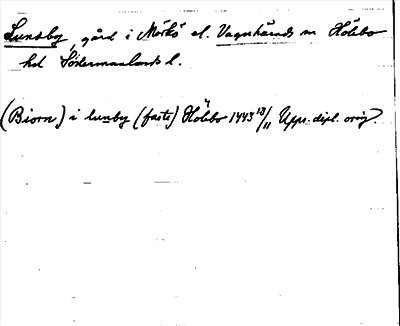 Lundby, gård i Mörkö el. Vagnhärads sn Hölebo
hd Södermanlands l.
(Biorn) i lunby (faste) Hölebo 1443 18/11 Upps. dipl. orig.